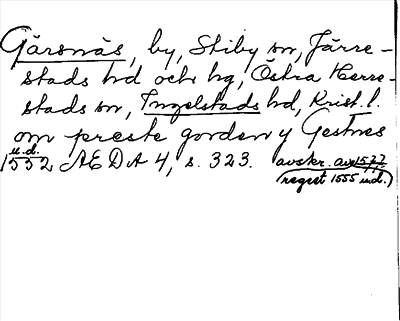 Gärsnäs, by, Stiby sn, Järre-
stads hd och hg, Östra Herre-
stads sn, Ingelstads hd, Krist. l.
om preste gorden y Gestnes
u.d.
1532 ÆDA 4, s. 323. avskr. av 1577
(regest 1555 ind.)